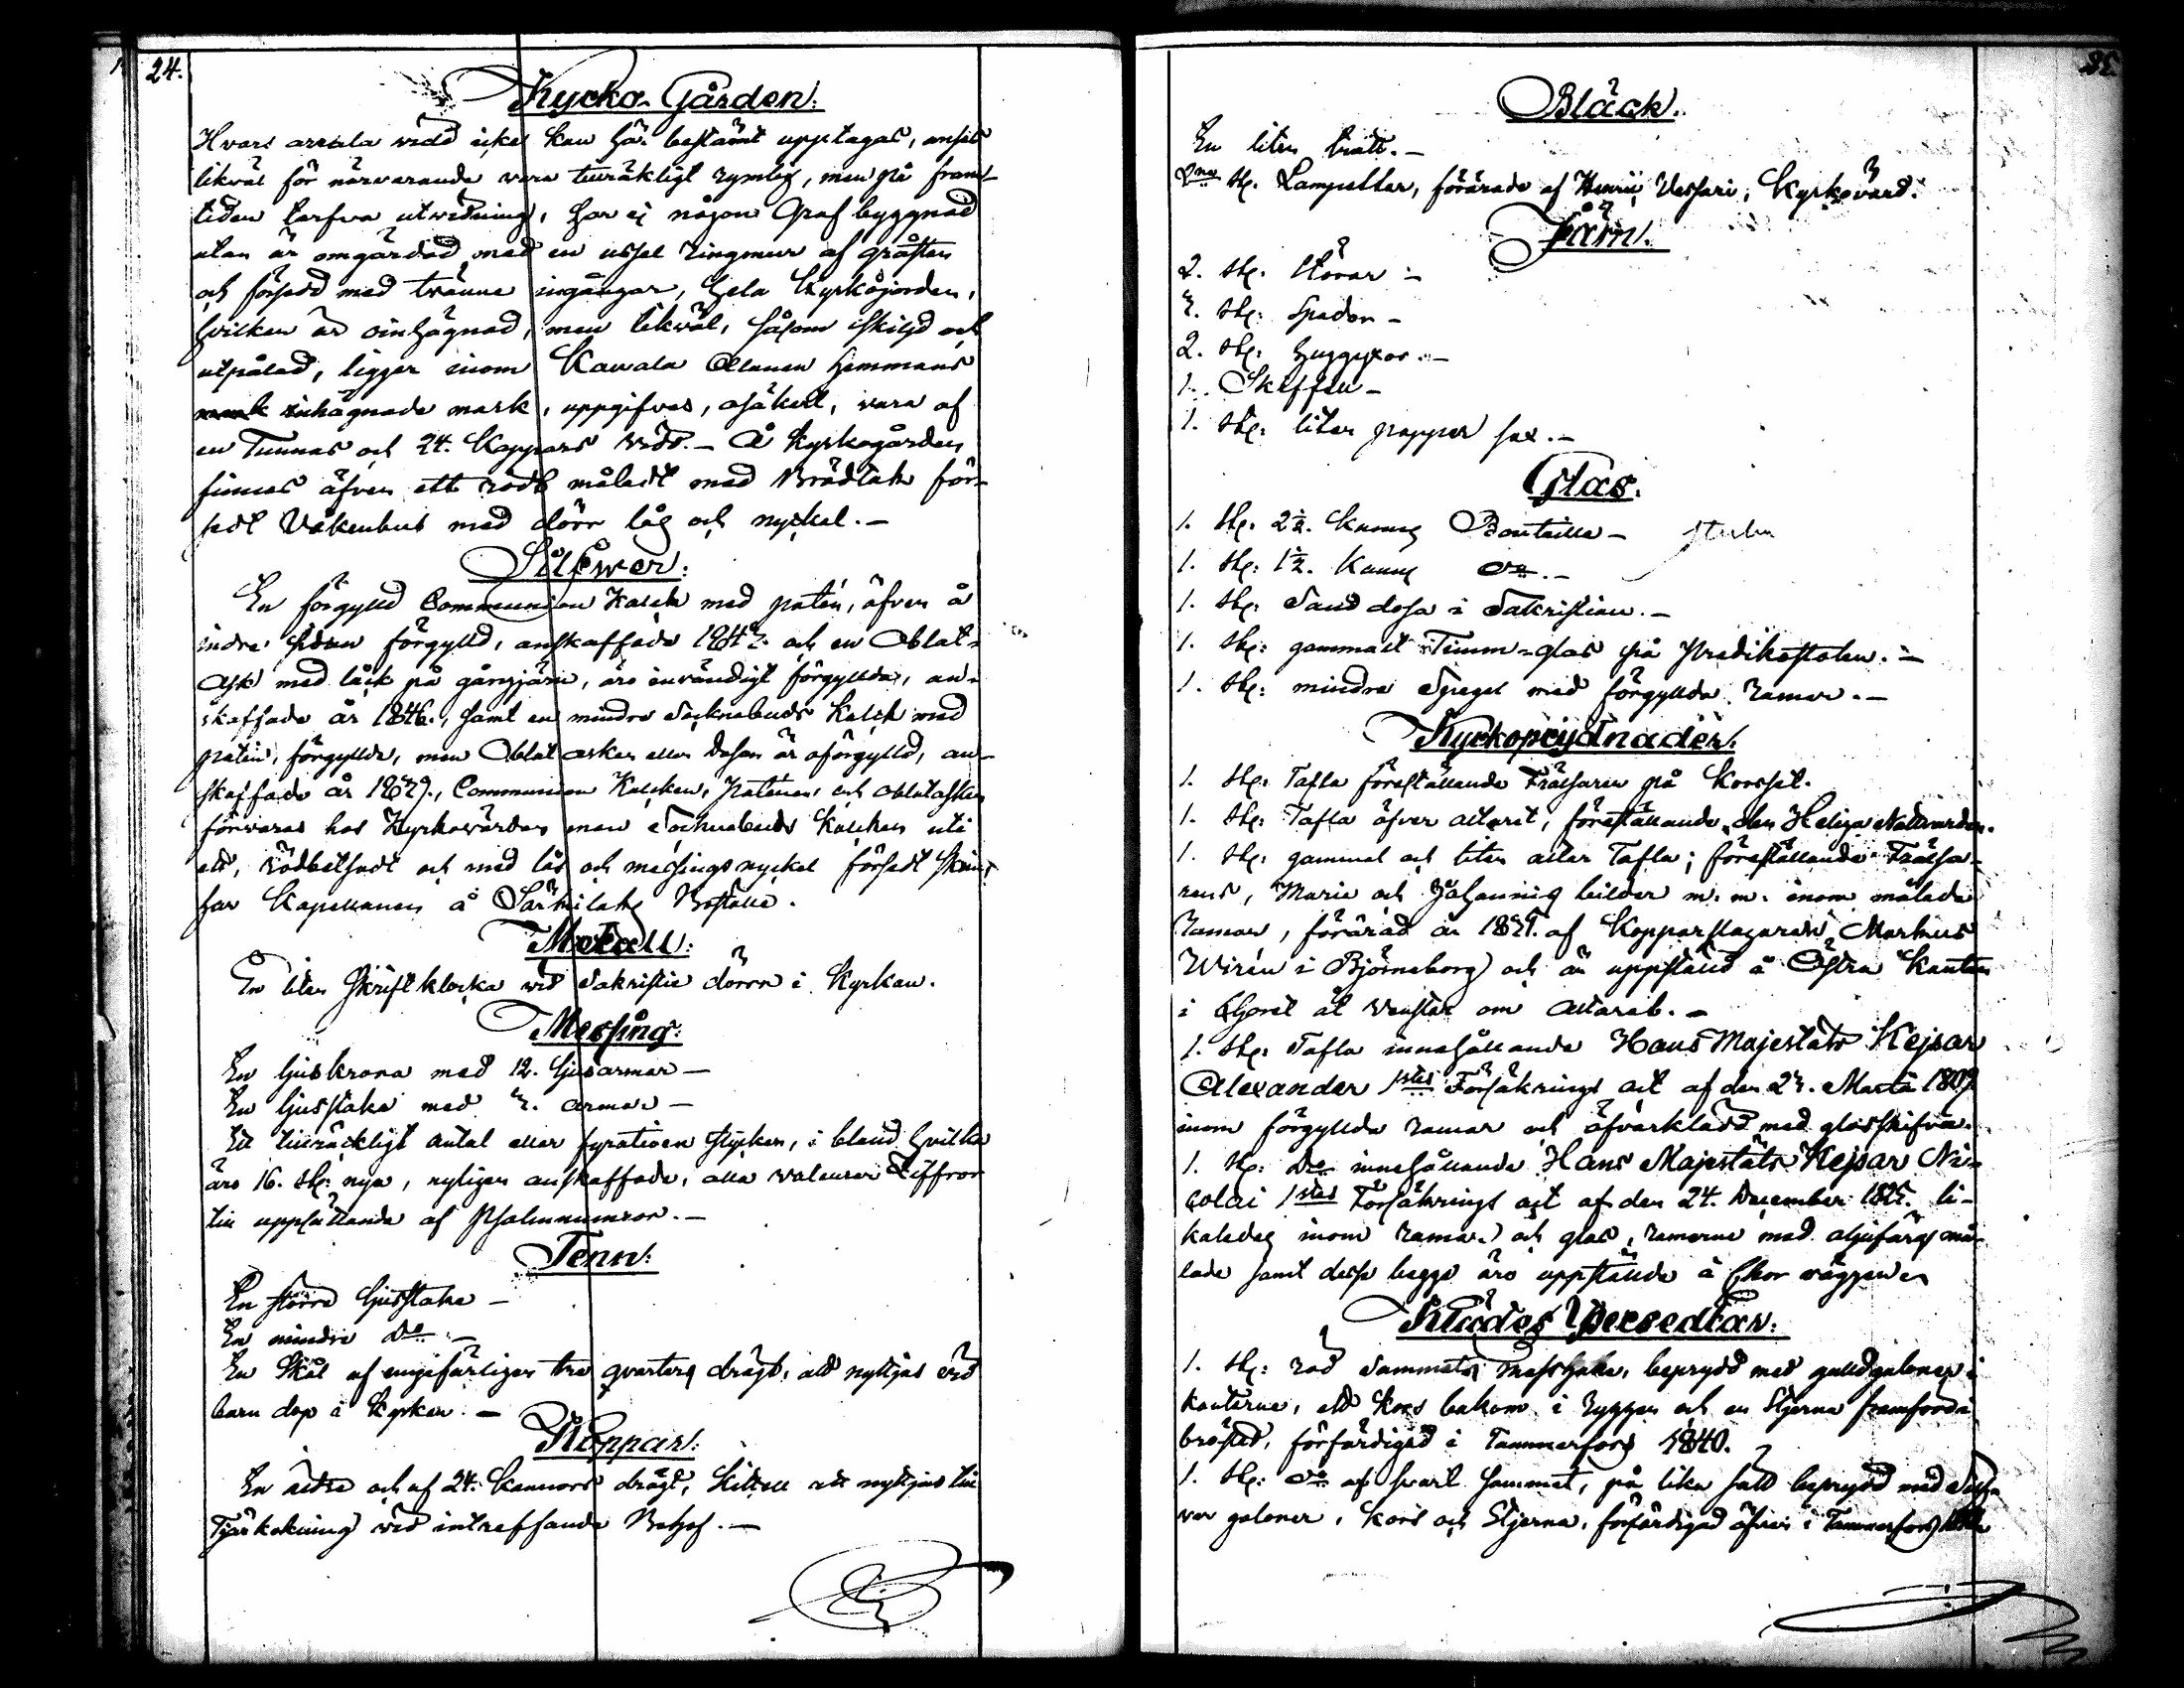 24.
Kyrko-Gården:
Hvars areala vidd icke kan här bestämt upptagas, anses
likväl för närvarande vara tillräkligt rymlig, men på fram-
tiden tarfva utvidning, har ej någon Graf byggnad
utan är omgärdad med en ussel ringmur af gråsten
och försedd med tvänne ingångar, hela Kyrkojorden,
hvilken är oinhägnad, men likväl, såsom skiljd och
utpålad, ligger inom Kawala Allanen Hemmans
inhägnade mark, uppgifves, osäkert, vara af
en Tunnas och 24. Kappars vidd. - Å Kyrkogården
finnes äfven ett rödt måladt med Brädtak för-
sedt Våkenhus med dörr lås och nyckel. -
Silfwer:
En förgylld Communion Kalck med patén, äfven å
indre sidan förgylld, anskaffade och en Oblat-
Ask med låck på gångjärn, äro invändigt förgyllda, an-
skaffade år 1846., samt en mindre Socknebuds Kalck med
patén, förgyllda, men Oblat asken eller dosan är oförgylld, an-
skaffade år Communion Kalcken, Paténen, och oblatasken
förvaras hos Kyrkovärden men Socknebuds Kalcken uti
ett, rödbetsadt och med lås och messings nyckel försedt skrin,
har Kapellanen å Särkilaks Boställe.
Metall:
En liten Skriftklocka vid Sakristie dörren i Kyrkan.
Messing:
En ljuskrona med 12. ljusarmar -
En ljusstake med armar -
Ett tillräckligt antal eller fyratioen stycken, i bland hvilka
äro 16. st: nya, nyligen anskaffade, alla valeurer Ziffror
till uppsättande af Psalmnumror. -
Tenn:
En större ljusstake -
En mindre do -
En Skål af ungefärligen tre qvarters drägt, att nyttjas vid
barn dop i Kyrkan. -
Koppar:
En äldre och af 24. Kannors drägt, Kittel att nyttjas till
Tjärkokning vid inträffande Behof. -
25.
Bläck.
En liten tratt. -
2ne st. Lampetter, förärade af Henric Vessari, Kyrkovärd.
Järn:
2. st: Störar -
st: Spador -
2. st: huggyxor. -
1. Skiffel -
1. st: liten papper sax. -
Glas:
1. st: 2½. Kanns Bouteille -
1. st: 1½. Kanns do. -
1. st: Sand dosa i Sakristian. -
1. st: gammalt Timm-glas på Predikostolen. -
1. st: mindre Spegel med förgyllda ramar. -
Kyrkoprydnader:
1. st: Tafla föreställande Frälsaren på Korsset.
1. st: Tafla öfver altaret, föreställande den Heliga Nattvarden.
1. st: gammal och liten altar Tafla; föreställande Frälsa-
rens, Marie och Johannis bilder m. m. inom målade
Ramar, förärad år af Kopparslagaren Markus
Wirén i Björneborg och är uppställd å Östra Kanten
i Choret åt venster om Altaret. -
1. st: Tafla innehållande Hans Majestäts Kejsar
Alexander 1stes Försäkrings act af den Martii 1809
inom förgyllda ramar och öfverklädd med glasskifva.
1. st: do innehållande Hans Majestäts Kejsar Ni-
colai 1stes Försäkrings act af den 24. December 1825. li-
kaledes inom ramar och glas, ramerne med oljefärg må-
lade samt desse begge äro uppställde å Chor väggen
Klädes Persedlar:
1. st: röd Sammets Messhake, beprydd med guldgaloner i
kanterne, ett Kors bakom i ryggen och en Stjerna framför å
bröstet, förfärdigad i Tammerfors 1840.
1. st: do af svart Sammet, på lika sätt beprydd med Silf-
ver galoner, Kors och Stjerna, förfärdigad äfven i Tammerfors